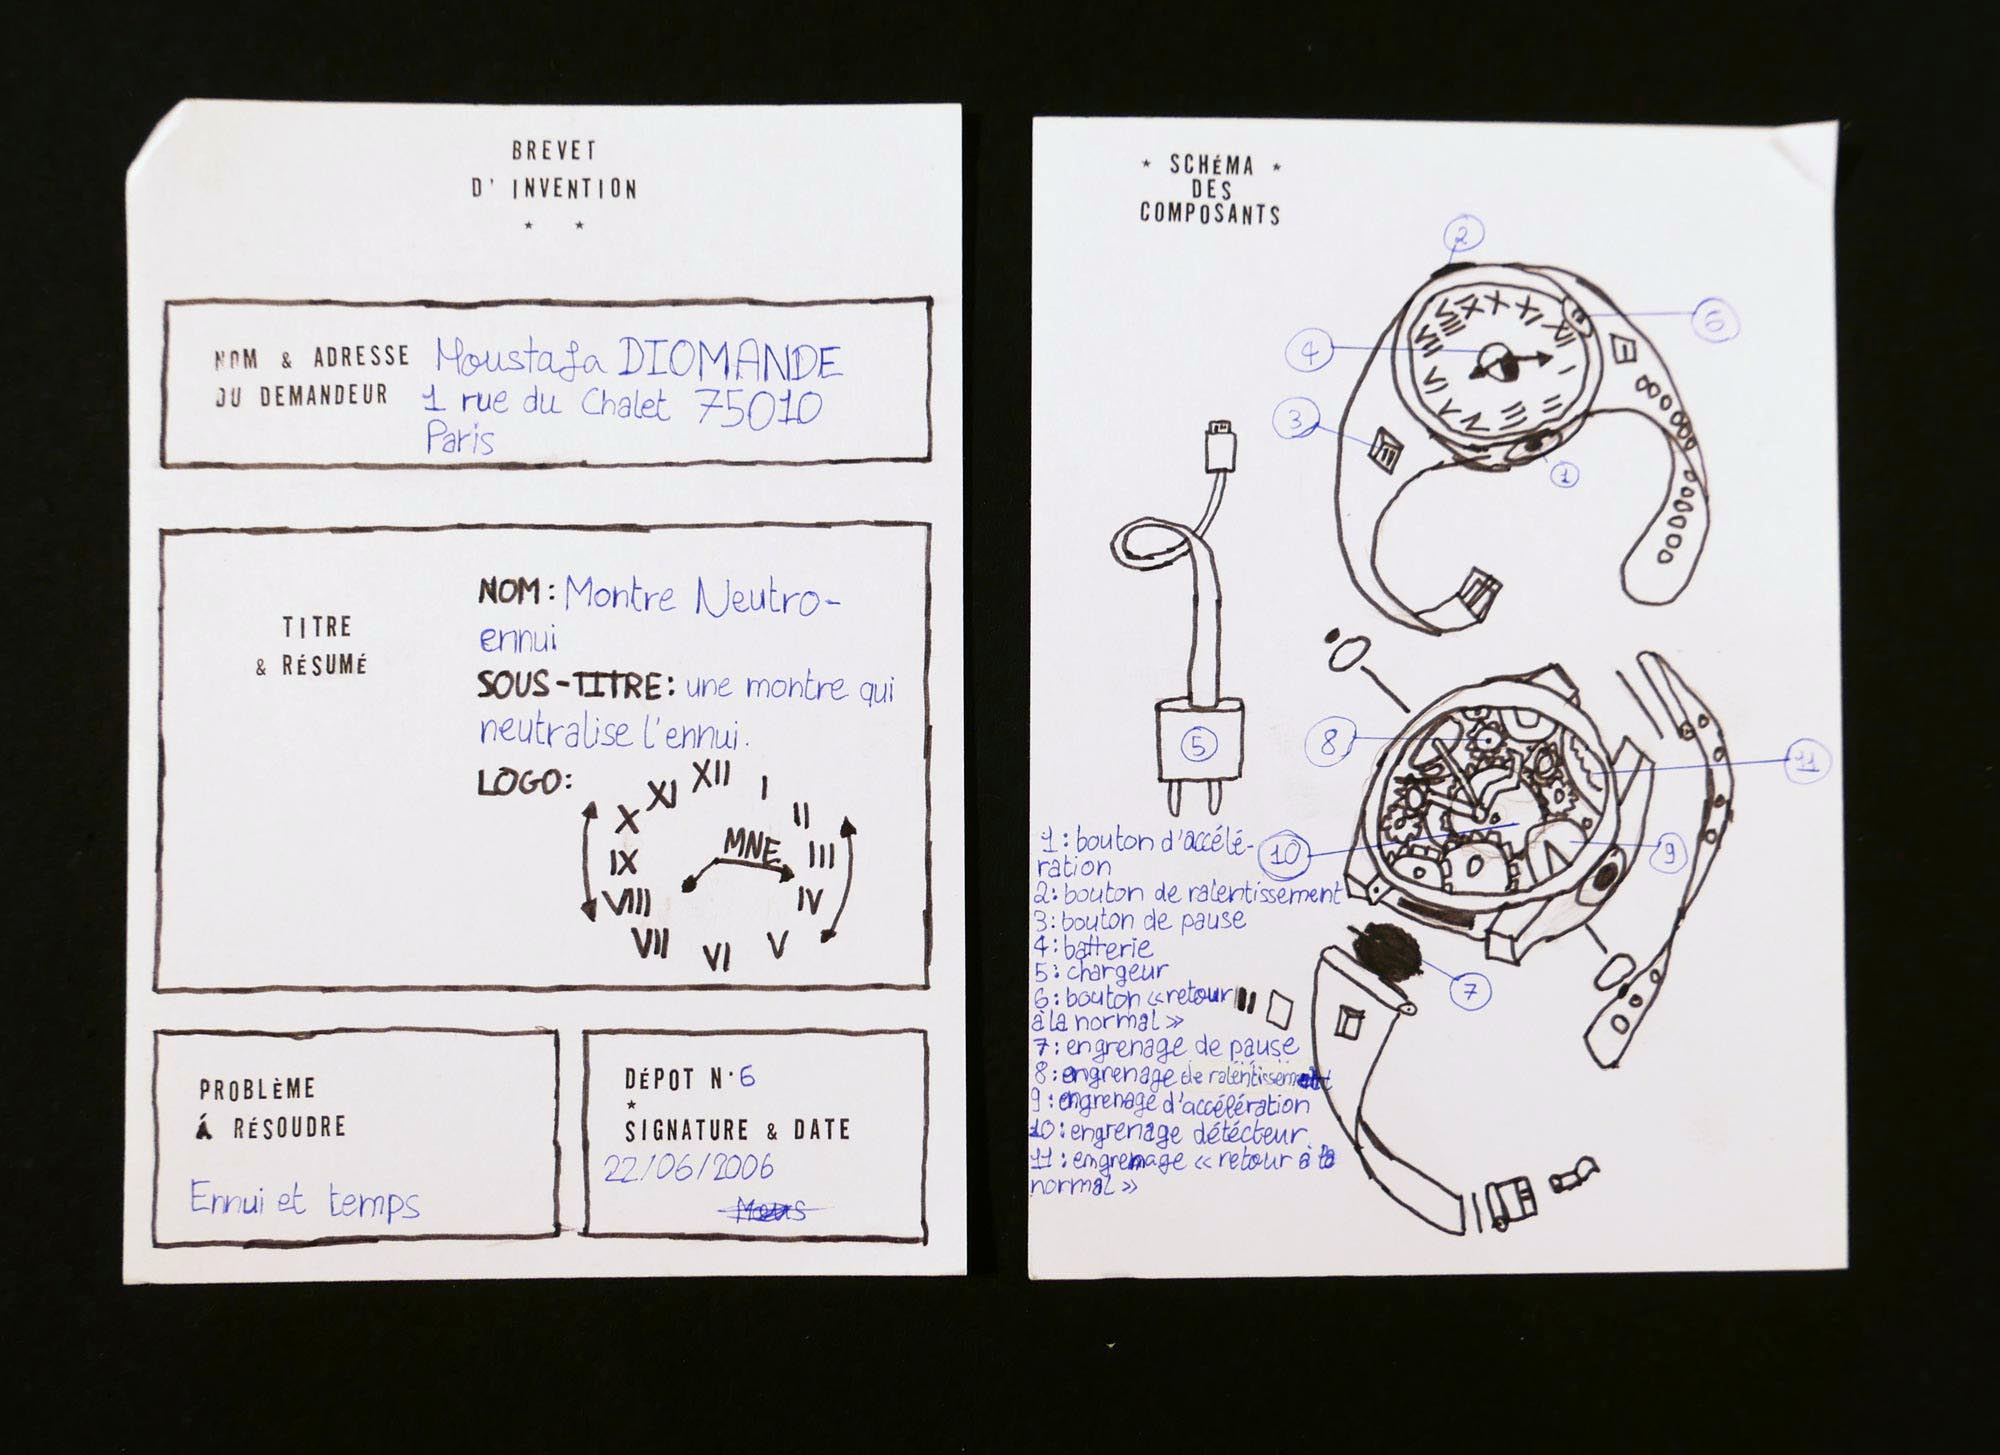 BREVET
D' INVENTION
* *
NOM & ADRESSE
DU DEMANDEUR
Moustafa DIOMANDE
1 rue du Chalet 75010
Paris
TITRE
& RÉSUMÉ
NOM: Montre Neutro-
ennui
SOUS-TITRE: une montre qui
neutralise l'ennui.
LOGO:
XII
I
II
III
IV
V
VI
VII
VIII
IX
X
XI
MNE
PROBLÈME
Á RÉSOUDRE
Ennui et temps
DÉPOT N° 6
*
SIGNATURE & DATE
22/06/2006
* SCHÉMA *
DES
COMPOSANTS
2
6
4
3
1
5
8
11
10
9
7
1: bouton d'accélé-
ration
2: bouton de ralentissement
3: bouton de pause
4: batterie
5: chargeur
6: bouton «retour
à la normal»
7: engrenage de pause
8: engrenage de ralentissement
9: engrenage d'accélération
10: engrenage détécteur
11: engrenage « retour à la
normal »